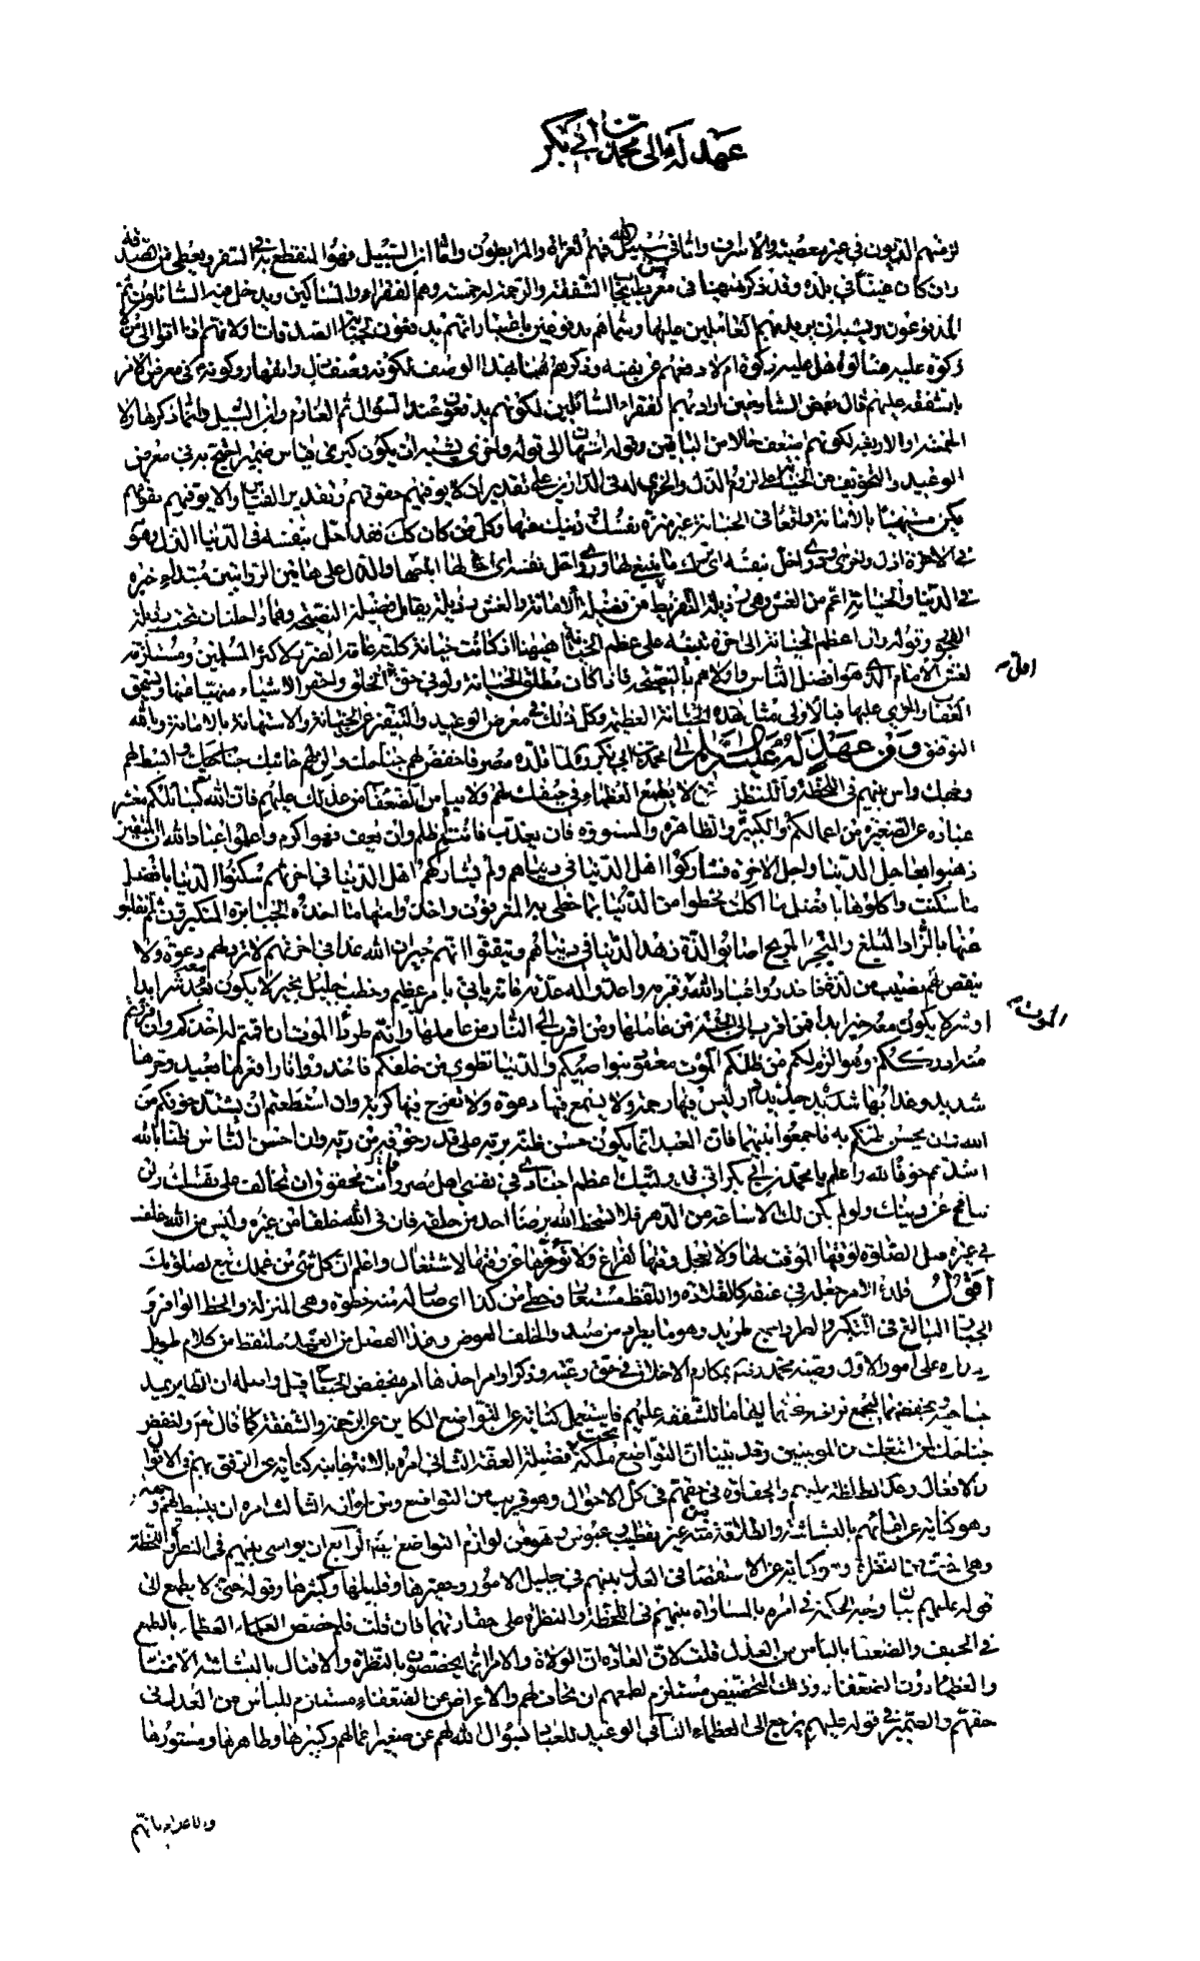 عهد له الى محمد بن ابي بكر
لزمهم الديون في غير معصية ولا اسراف واما في سبيل الله فهم الغزاة والمرابطون واما ابن السبيل فهو المنقطع به في السفر يعطى من الصدقة
وان كان غنيا في بلده وقد ذكر ههنا في معرض ايجاب الشفقة والرحمة له خمسة وهم الفقراء والمساكين ويدخل فيه السائلون ثم
المدفوعون ويشبه ان يريد بهم العاملين عليها وسماهم مدفوعين باعتبار انهم يدفعون لجباية الصدقات ولانهم اذا اتوا الى من
زكوة عليه فسألوه هل عليه زكوة ام لا دفعهم عن نفسه وذكرهم ههنا بهذا الوصف لكونه وصف ذل وانقهار وكونه في معرض الامر
بالشفقة عليهم قال بعض الشارحين اراد بهم الفقراء السائلين لكونهم يدفعون عند السؤال ثم الغارم وابن السبيل وانما ذكر هؤلاء
الخمسة او الاربعة لكونهم اضعف حالا من الباقين وقوله
الوعيد والتخويف من الخيانة
يكن مستهينا بالامانة راتعا في الخيانة غير منزه نفسه ودينه عنها وكل من كان كذلك فقد احل بنفسه في الدنيا الذل وهو
في الاخرة اذل واخزى
في الدنيا والخيانة اعم من الغش وهي رذيلة التفريط من فضيلة الامانة والغش رذيلة يقابل فضيلة النصيحة وهما داخلتان تحت رذيلة
الفجور وقوله وان اعظم الخيانة الى اخره تنبيه على عظم الخيانة ههنا اذ كانت خيانة كلية عائدة الضرر لاكثر المسلمين ومستلزمة
لغش الامام الذي هو افضل الناس واولاهم بالنصيحة فاذا كان مطلق الخيانة ولو في حق احقر الخلق واحقر الاشياء منهيا عنها ويستحق
العقاب والخزي عليها فبالاولى مثل هذه الخيانة العظيمة وكل ذلك في معرض الوعيد والتنفير عن الخيانة والاستهانة بالامانة وبالله
التوفيق ومن عهد له عليه السلام الى محمد بن ابي بكر رض لما قلده مصر فاخفض لهم جناحك والن لهم جانبك وابسط لهم
وجهك واس بينهم في اللحظة والنظرة حتى لا يطمع العظماء في حيفك لهم ولا ييأس الضعفاء من عدلك عليهم فان الله يسائلكم معشر
عباده عن الصغيرة من اعمالكم والكبيرة والظاهرة والمستورة فان يعذب فانتم اظلم وان يعف فهو اكرم واعلموا عباد الله ان المتقين
ذهبوا بعاجل الدنيا واجل الاخرة فشاركوا اهل الدنيا في دنياهم ولم يشاركهم اهل الدنيا في اخرتهم سكنوا الدنيا بافضل
ما سكنت واكلوها بافضل ما اكلت فحظوا من الدنيا بما حظي به المترفون واخذوا منها ما اخذه الجبابرة المتكبرون ثم انقلبوا
عنها بالزاد المبلغ والمتجر المربح اصابوا لذة زهد الدنيا في دنياهم وتيقنوا انهم جيران الله غدا في اخرتهم لا ترد لهم دعوة ولا
ينقص لهم نصيب من لذة فاحذروا عباد الله الموت وقربه واعدوا له عدته فانه يأتي بامر عظيم وخطب جليل بخير لا يكون معه شر ابدا
او شر لا يكون معه خير ابدا فمن اقرب الى الجنة من عاملها ومن اقرب الى النار من عاملها وانتم طرداء الموت ان اقمتم له اخذكم وان فررتم
منه ادرككم وهو الزم لكم من ظلكم الموت معقود بنواصيكم والدنيا تطوى من خلفكم فاحذروا نارا قعرها بعيد وحرها
شديد وعذابها جديد دار ليس فيها رحمة ولا يسمع فيها دعوة ولا تفرج فيها كربة وان استطعتم ان يشتد خوفكم من
الله وان يحسن ظنكم به فاجمعوا بينهما فان العبد انما يكون حسن ظنه بربه على قدر خوفه من ربه وان احسن الناس ظنا بالله
اشدهم خوفا لله واعلم يا محمد بن ابي بكر اني قد وليتك اعظم اجنادي في نفسي اهل مصر وانت محقوق ان تخالف على نفسك وان
تنافح عن دينك ولو لم يكن لك الا ساعة من الدهر فلا تسخط الله برضا احد من خلقه فان في الله خلفا من غيره وليس من الله خلف
في غيره صل الصلوة لوقتها الموقت لها ولا تعجل وقتها لفراغ ولا تؤخرها عن وقتها لاشتغال واعلم ان كل شيء من عملك تبع لصلوتك
اقول قلده الامر جعله في عنقه كالقلادة واللفظ مستعار وحظي من كذا اي صار له منه حظوة وهي المنزلة والحظ الوافر و
الجبار البالغ في التكبر والطرداء جمع طريد وهو ما يطرد من صيد والخلف العوض وهذا الفصل من العهد ملتقط من كلام طويل
مداره على امور الاول وصية محمد بمكارم الاخلاق في حق رعيته وذكر اوامر احدها امره بخفض الجناح قيل واصله ان الطاير يمد
جناحيه ويخفضهما ليجمع فرخه تحتهما ايهاما للشفقة عليهم فاستعمل كناية عن التواضع الكاين عن الرحمة والشفقة كما قال تع واخفض
جناحك لمن اتبعك من المومنين وقد بينا ان التواضع ملكة تحت فضيلة العفة الثاني امره بالانة جانبه كناية عن الرفق بهم في الاقوال
والافعال وعدم الغلظة عليهم والجفاوة في حقهم في كل الاحوال وهو قريب من التواضع ومن لوازمه الثالث امره ان يبسط لهم وجهه
وهو كناية عن لقائهم بالبشاشة والطلاقة من غير تقطيب وعبوس وهو من لوازم التواضع ايضا الرابع ان يواسي بينهم في النظرة واللحظة
وهي اخف من النظرة وهو كناية عن الاستقصاء في العدل بينهم في جليل الامور وحقيرها وقليلها وكثيرها وقوله حتى لا يطمع الى
قوله عليهم بيان وجه الحكمة في امره بالمساواة بينهم في اللحظة والنظرة على حقارتهما فان قلت فلم خصص العظماء بالطمع
في الحيف والضعفاء باليأس من العدل قلت لان العادة ان الولاة والامراء انما يخصون بالنظرة والاقبال بالبشاشة الاغنياء
والعظماء دون الضعفاء وذلك التخصيص مستلزم لطمعهم ان يحاف لهم والاعراض عن الضعفاء مستلزم لليأس من العدل في
حقهم والضمير في قوله عليهم يرجع الى العظماء الثاني الوعيد للعباد بسؤال الله لهم عن صغير اعمالهم وكبيرها وظاهرها ومستورها